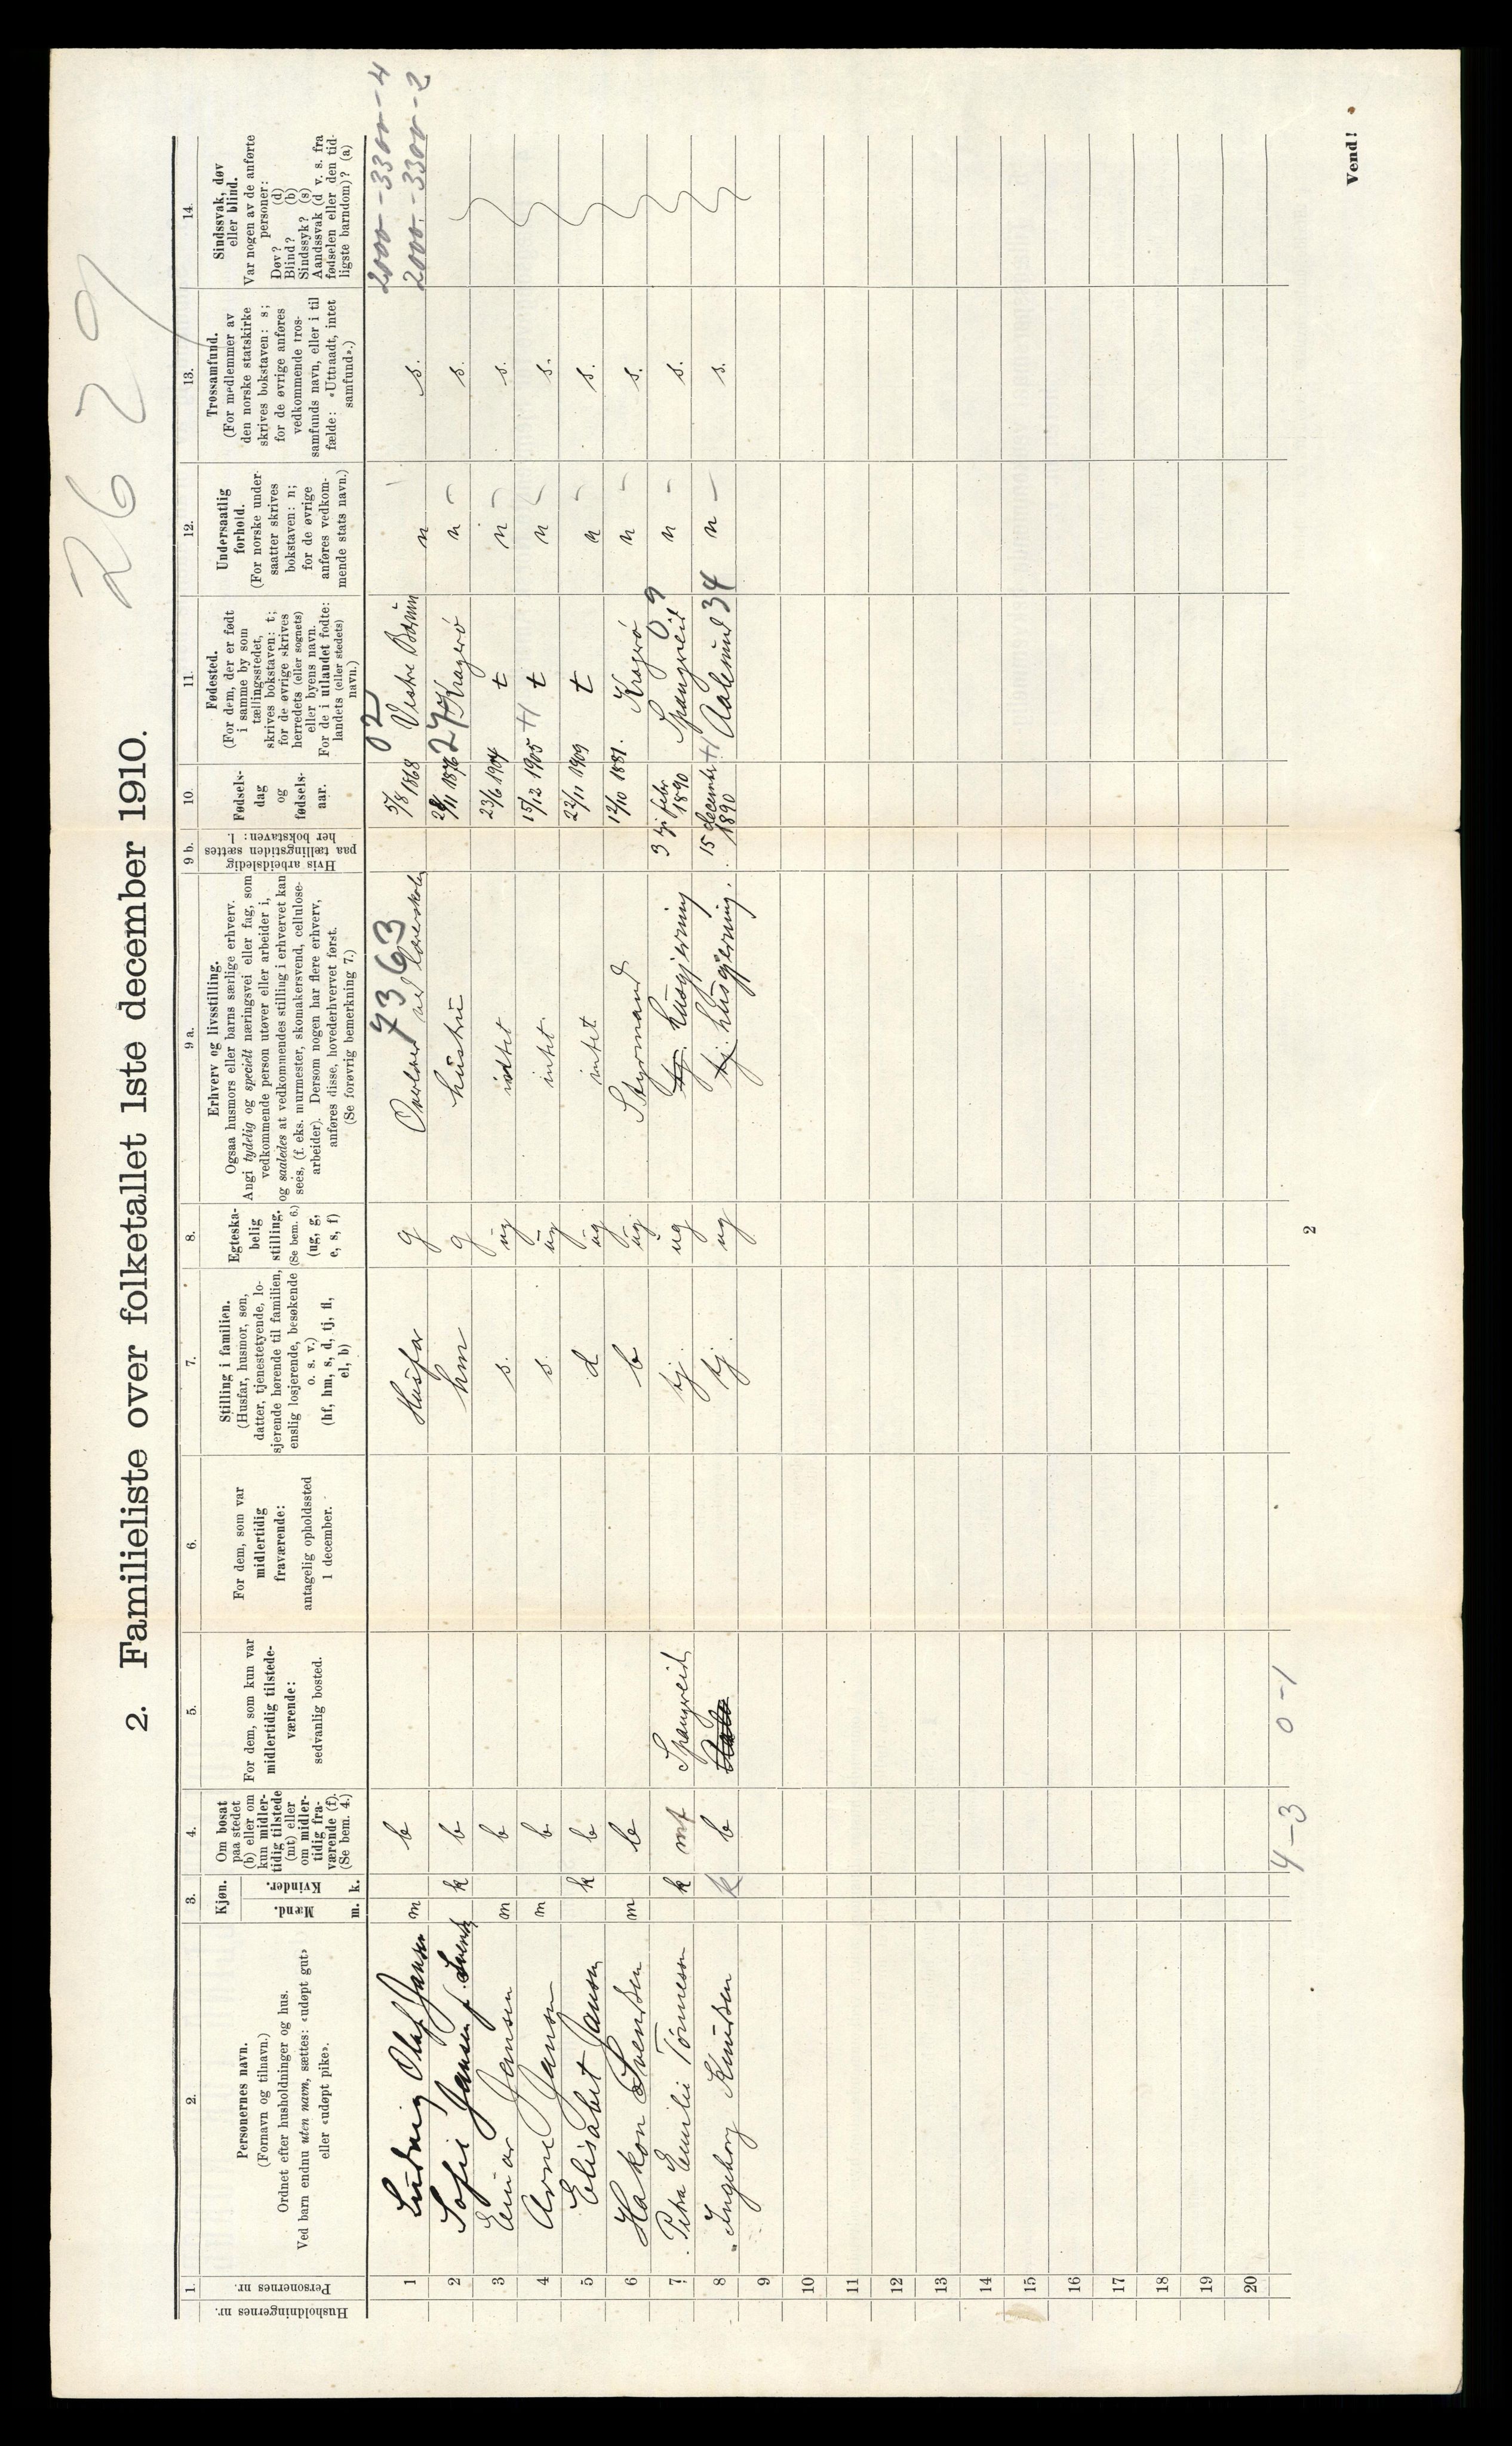 2629
2. Familieliste over folketallet 1ste december 1910.
Husholdningernes nr.
1.
Personernes nr.
2.
Personernes navn.
(Fornavn og tilnavn.)
Ordnet efter husholdninger og hus.
Ved barn endnu uten navn, sættes: «udøpt gut»
eller «udøpt pike».
3.
Kjøn.
Mænd.
Kvinder.
m. k.
4.
Om bosat
paa stedet
(b) eller om
kun midler-
tidig tilstede
(mt) eller
om midler-
tidig fra-
værende (f).
(Se bem. 4.)
5.
For dem, som kun var
midlertidig tilstede-
værende:
sedvanlig bosted.
6.
For dem, som var
midlertidig
fraværende:
antagelig opholdssted
1 december.
7.
Stilling i familien.
(Husfar, husmor, søn,
datter, tjenestetyende, lo-
sjerende hørende til familien,
enslig losjerende, besøkende
o. s. v.)
(hf, hm, s, d, tj, fl,
el, b)
8.
Egteska-
belig
stilling.
(Se bem. 6.)
(ug, g,
e, s, f)
9 a.
Erhverv og livsstilling.
Ogsaa husmors eller barns særlige erhverv.
Angi tydelig og specielt næringsvei eller fag, som
vedkommende person utøver eller arbeider i,
og saaledes at vedkommendes stilling i erhvervet kan
sees, (f. eks. murmester, skomakersvend, cellulose-
arbeider). Dersom nogen har flere erhverv,
anføres disse, hovederhvervet først.
(Se forøvrig bemerkning 7.)
9 b.
Hvis arbeidsledig
paa tællingstiden sættes
her bokstaven: l.
10.
Fødsels-
dag
og
fødsels-
aar.
11.
Fødested.
(For dem, der er født
i samme by som
tællingsstedet,
skrives bokstaven: t;
for de øvrige skrives
herredets (eller sognets)
eller byens navn.
For de i utlandet fødte:
landets (eller stedets)
navn.)
12.
Undersaatlig
forhold.
(For norske under-
saatter skrives
bokstaven: n;
for de øvrige
anføres vedkom-
mende stats navn.)
13.
Trossamfund.
(For medlemmer av
den norske statskirke
skrives bokstaven: s;
for de øvrige anføres
vedkommende tros-
samfunds navn, eller i til
fælde: «Uttraadt, intet
samfund».)
14.
Sindssvak, døv
eller blind.
Var nogen av de anførte
personer:
Døv? (d)
Blind? (b)
Sindssyk? (s)
Aandssvak (d v. s. fra
fødselen eller den tid-
ligste barndom)? (a)
7363 02 2000-3300-4
1 Ludvig Olaf Jansen m b Husfar g Overlærer ved lærerskolen 5/8 1868 Vestre Bærum n s. 2000-3300-2
2 Sofie Jansen f. k b hm g hustru 1876 27 Kragerø n s.
3 Einar Jansen m b s. ug intet 23/6 1904 t n s.
4 Arne Jansen m b s. ug intet 15/12 1905 t n s.
5 Elisabet Jansen k b d ug intet 22/11 1909 t n s.
6 Hakon Svendsen m b b ug Styrmand 12/10 1881. Kragerø n s.
09
7 Petra Emilie Tønnesen k mt Spangreid tj. ug tj. husgjerning 3 febr 1890 Spangreid n s.
8 Ingeborg Knudsen k b tj. ug tj. husgjerning. 15 december 1890 Aalesund 34 n s.
9
10
11
12
13
14
15
16
17
18
19
20
4-3 0-1
2
Vend!